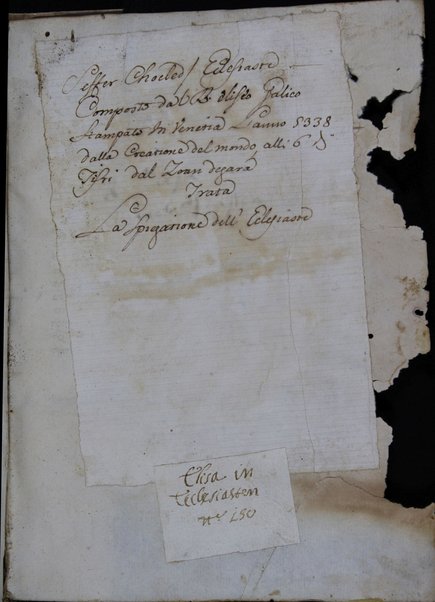 Seffer Choeled / Eclesiaste
Composto dal R. Eliseo Galico
stampato In Venetia L'anno 5338
dalla Creatione del mondo alli 6 di
Tisri dal Zoan degara
Trata
La spigatione dell' Eclesiaste
Elisa in
Ecclesiasten
nro 150